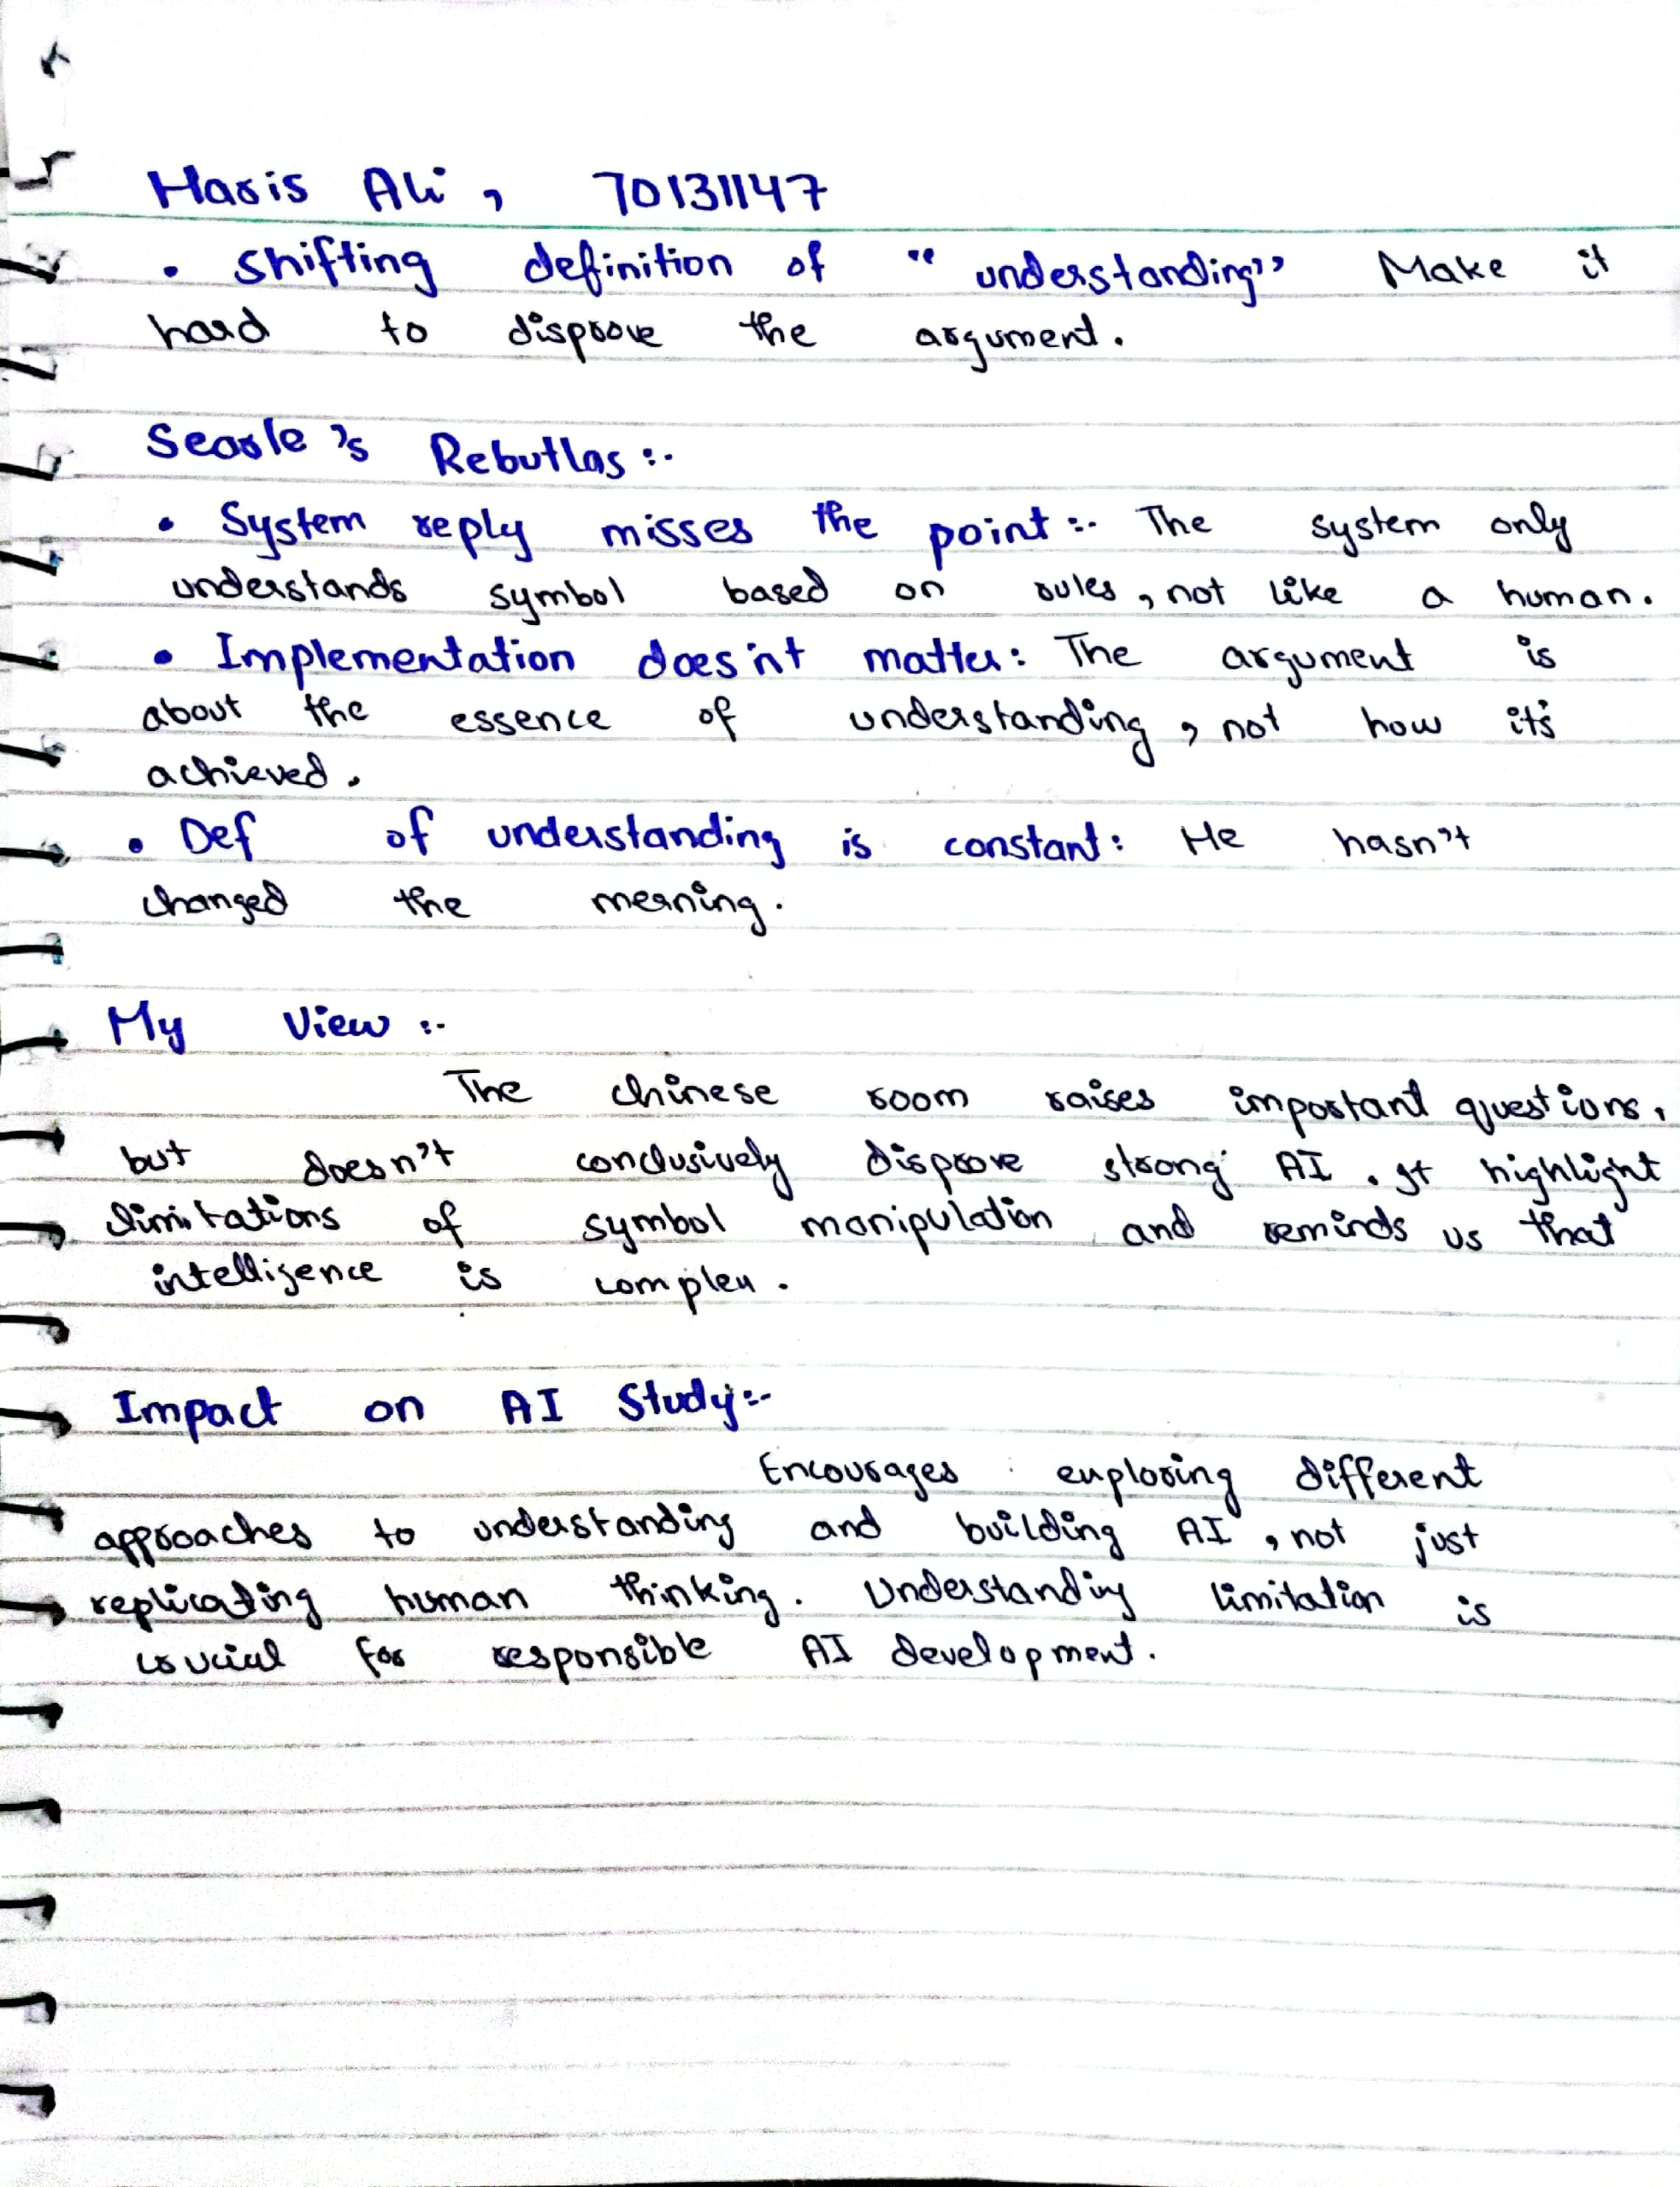 Haris Ali, 70131147
• Shifting definition of "understanding" Make it
hard to disprove the argument.
Searle's Rebutlas :-
• System reply misses the point :- The system only
understands symbol based on rules, not like a human.
• Implementation does'nt matter: The argument is
about the essence of understanding, not how it's
achieved.
• Def of understanding is constant: He hasn't
changed the meaning.
My View :-
The chinese room raises important questions,
but doesn't conclusively disprove strong AI. It highlight
limitations of symbol manipulation and reminds us that
intelligence is complex.
Impact on AI Study:-
Encourages exploring different
approaches to understanding and building AI, not just
replicating human thinking. Understanding limitation is
crucial for responsible AI development.